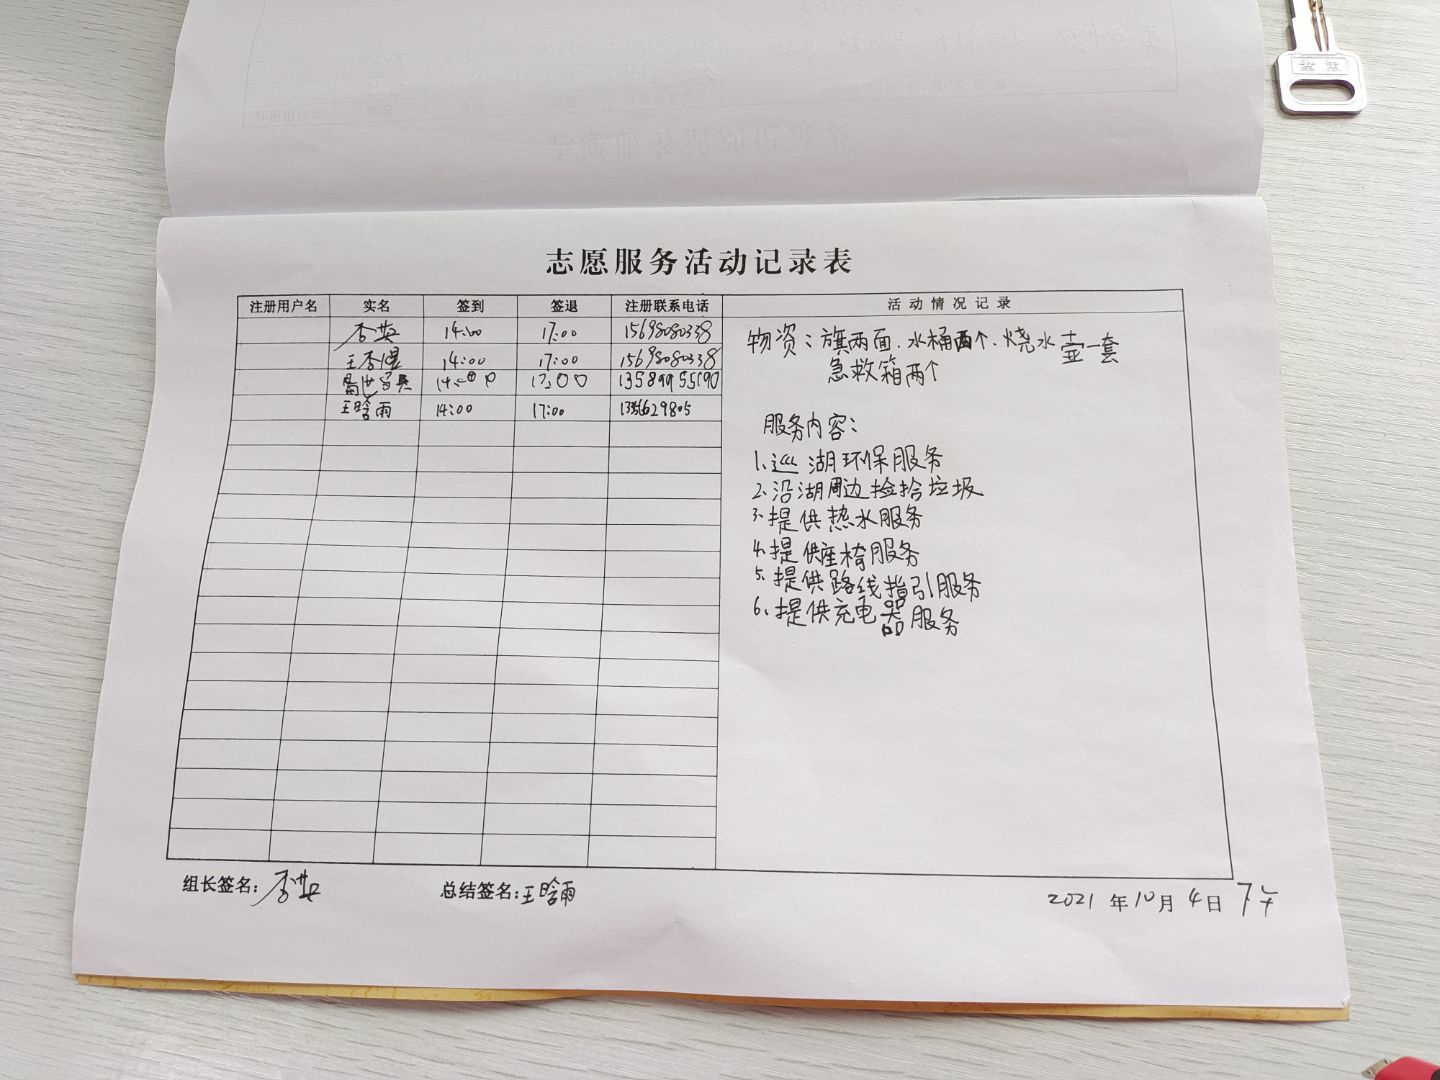 志愿服务活动记录表
注册用户名 实名 签到 签退 注册联系电话 活动情况记录
李英 14:00 17:00 15698080338
王李煜 14:00 17:00 15698080338
14:00 17:00 13589955190
王晗雨 14:00 17:00 1356629805
物资:旗两面、水桶两个、烧水壶一套
急救箱两个
服务内容:
1、巡湖环保服务
2、沿湖周边捡拾垃圾
3、提供热水服务
4、提供座椅服务
5、提供路线指引服务
6、提供充电器服务
组长签名:李英 总结签名:王晗雨 2021年10月4日 下午